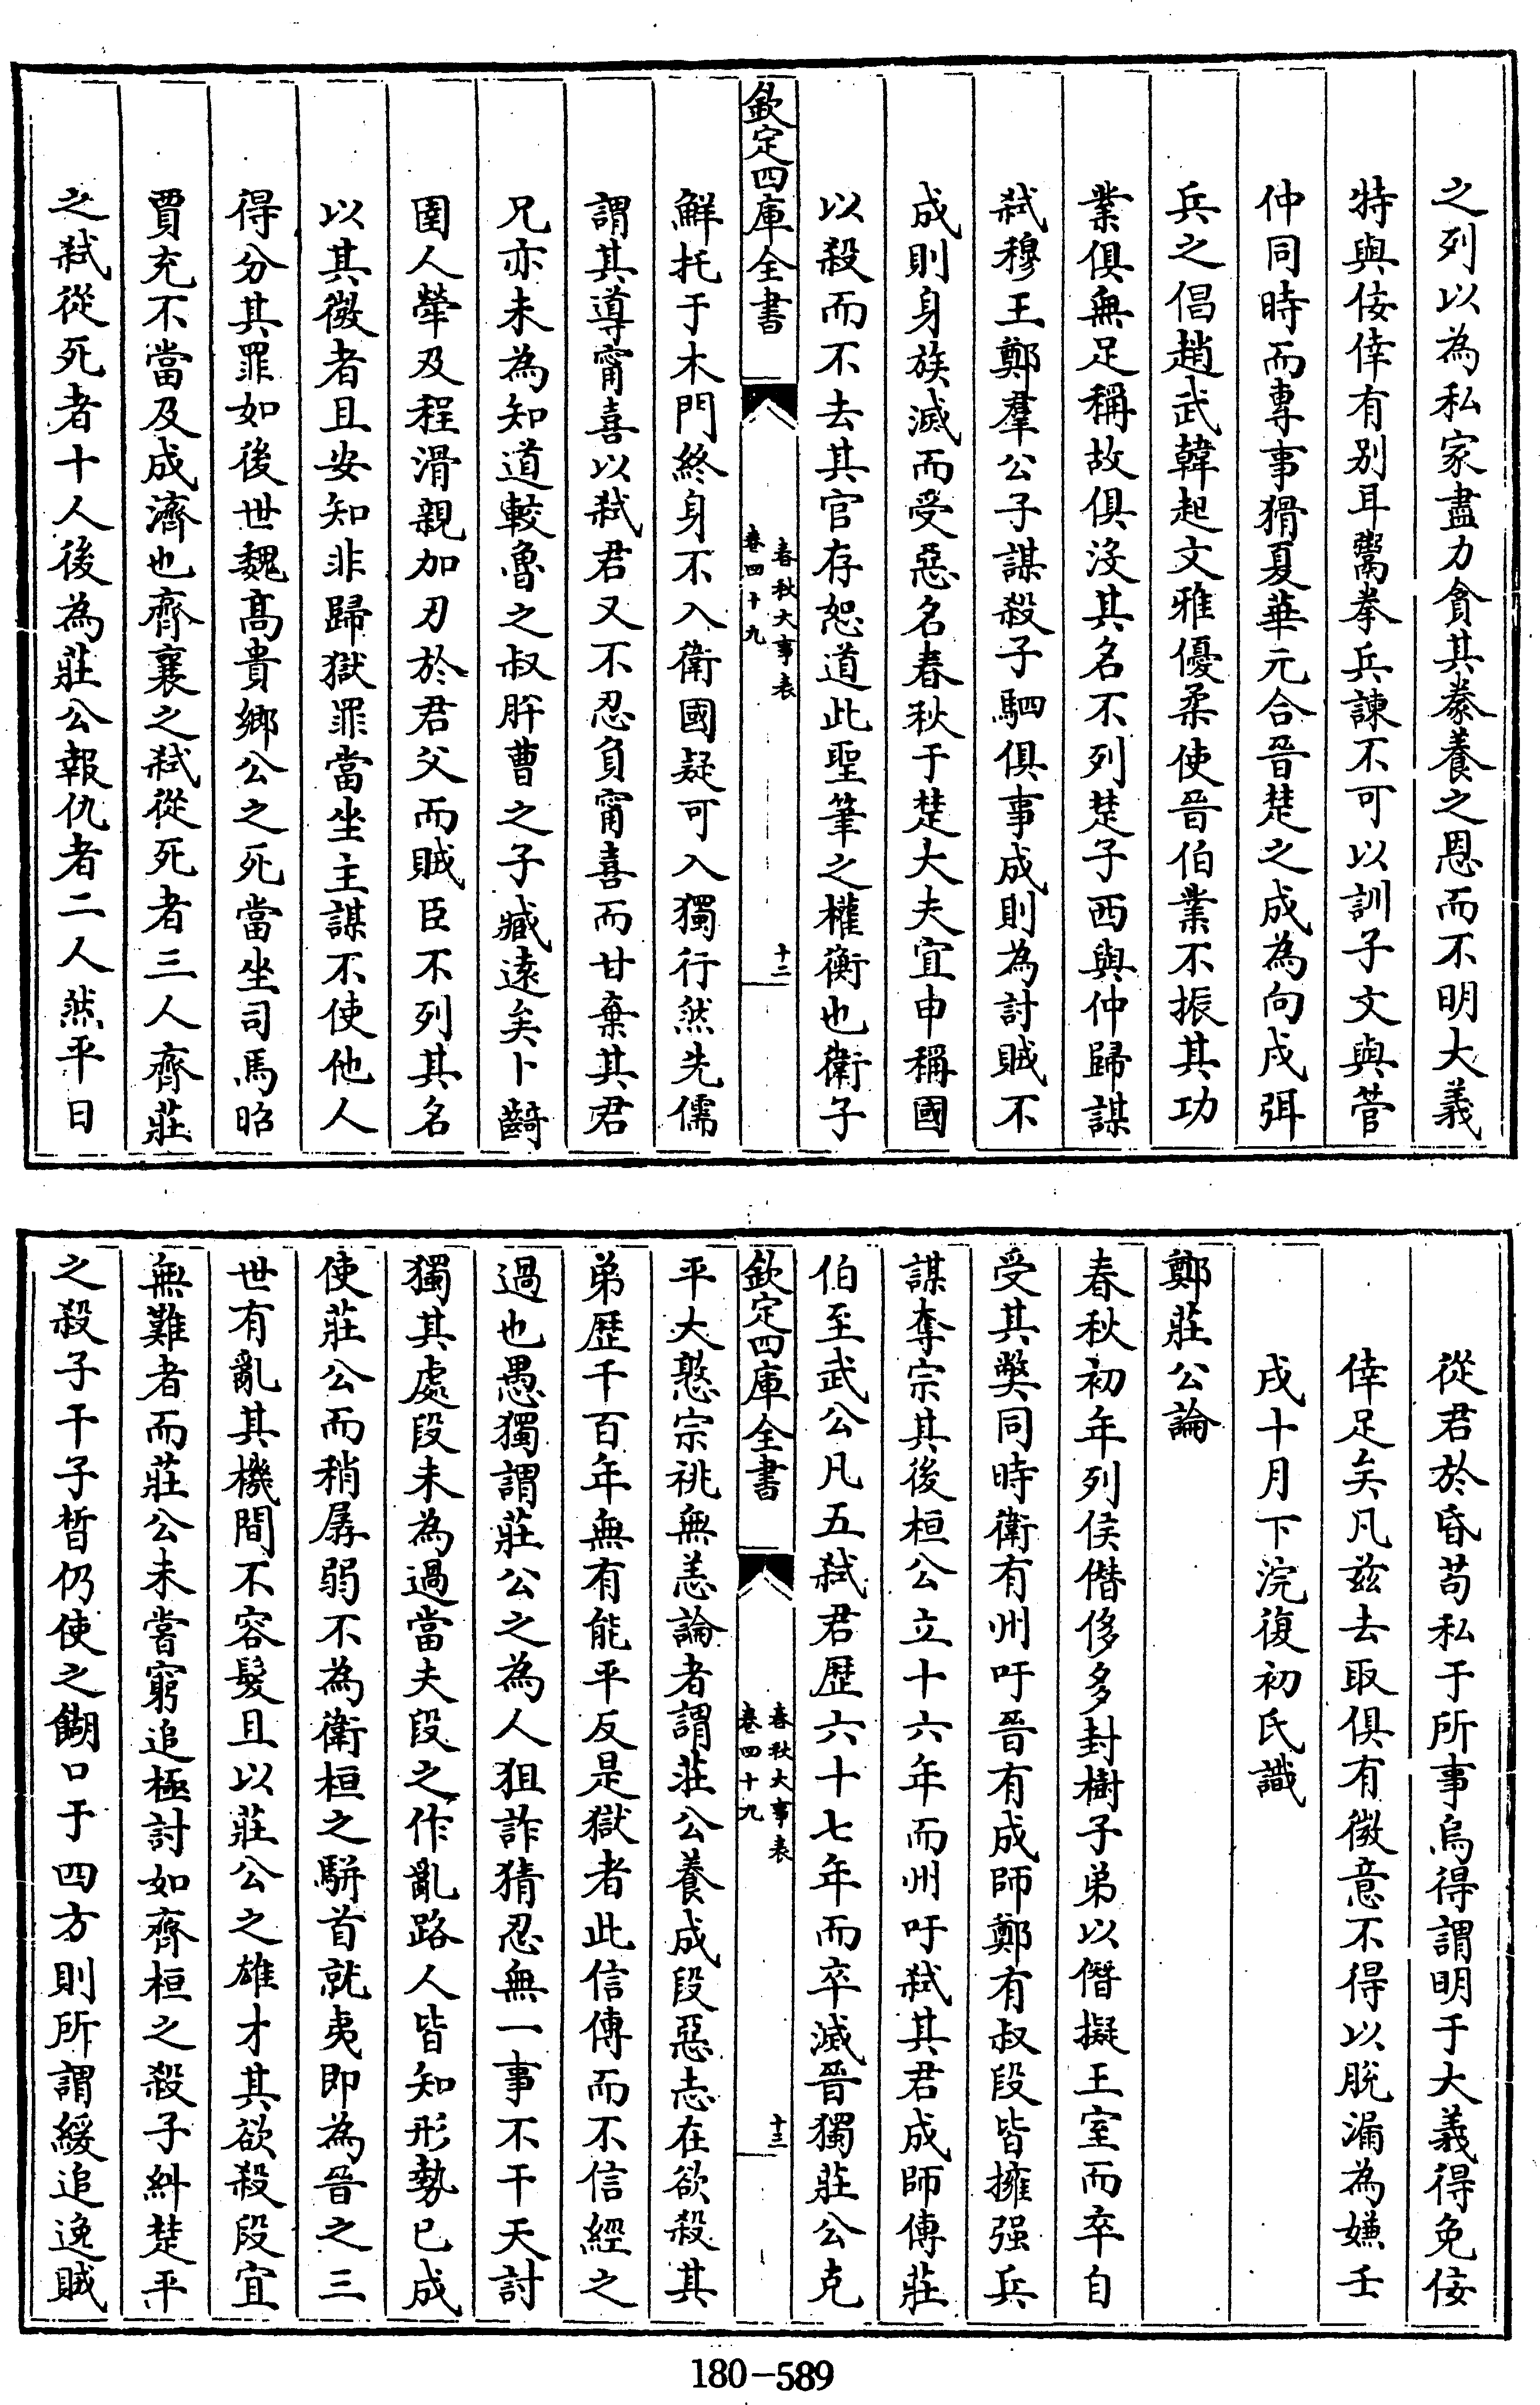 之列以為私家盡力貪其豢養之恩而不明大義
特與佞倖有别耳鬻拳兵諫不可以訓子文與管
仲同時而專事猾夏華元合晉楚之成為向戌弭
兵之倡趙武韓起文雅優柔使晉伯業不振其功
業俱無足稱故俱沒其名不列楚子西與仲歸謀
弑穆王鄭羣公子謀殺子駟俱事成則為討賊不
成則身族滅而受惡名春秋于楚大夫宜申稱國
以殺而不去其官存恕道此聖筆之權衡也衛子
欽定四庫全書
春秋大事表
卷四十九
十二
鮮托于木門終身不入衛國疑可入獨行然先儒
謂其導甯喜以弑君又不忍負甯喜而甘棄其君
兄亦未為知道較魯之叔肸曹之子臧遠矣卜齮
圉人犖及程滑親加刃於君父而賊臣不列其名
以其微者且安知非歸獄罪當坐主謀不使他人
得分其罪如後世魏高貴鄉公之死當坐司馬昭
賈充不當及成濟也齊襄之弑從死者三人齊莊
之弑從死者十人後為莊公報仇者二人然平日
從君於昏苟私于所事烏得謂明于大義得免佞
倖足矣凡兹去取俱有微意不得以脫漏為嫌壬
戌十月下浣復初氏識
鄭莊公論
春秋初年列侯僭侈多封樹子弟以僭擬王室而卒自
受其獘同時衛有州吁晉有成師鄭有叔段皆擁强兵
謀奪宗其後桓公立十六年而州吁弑其君成師傳莊
伯至武公凡五弑君歴六十七年而卒滅晉獨莊公克
欽定四庫全書
春秋大事表
卷四十九
十三
平大憝宗祧無恙論者謂莊公養成段惡志在欲殺其
弟歴千百年無有能平反是獄者此信傳而不信經之
過也愚獨謂莊公之為人狙詐猜忍無一事不干天討
獨其處段未為過當夫段之作亂路人皆知形勢已成
使莊公而稍孱弱不為衛桓之駢首就夷即為晉之三
世有亂其機間不容髮且以莊公之雄才其欲殺段宜
無難者而莊公未嘗窮追極討如齊桓之殺子糾楚平
之殺子干子晳仍使之餬口于四方則所謂緩追逸賊
180-589